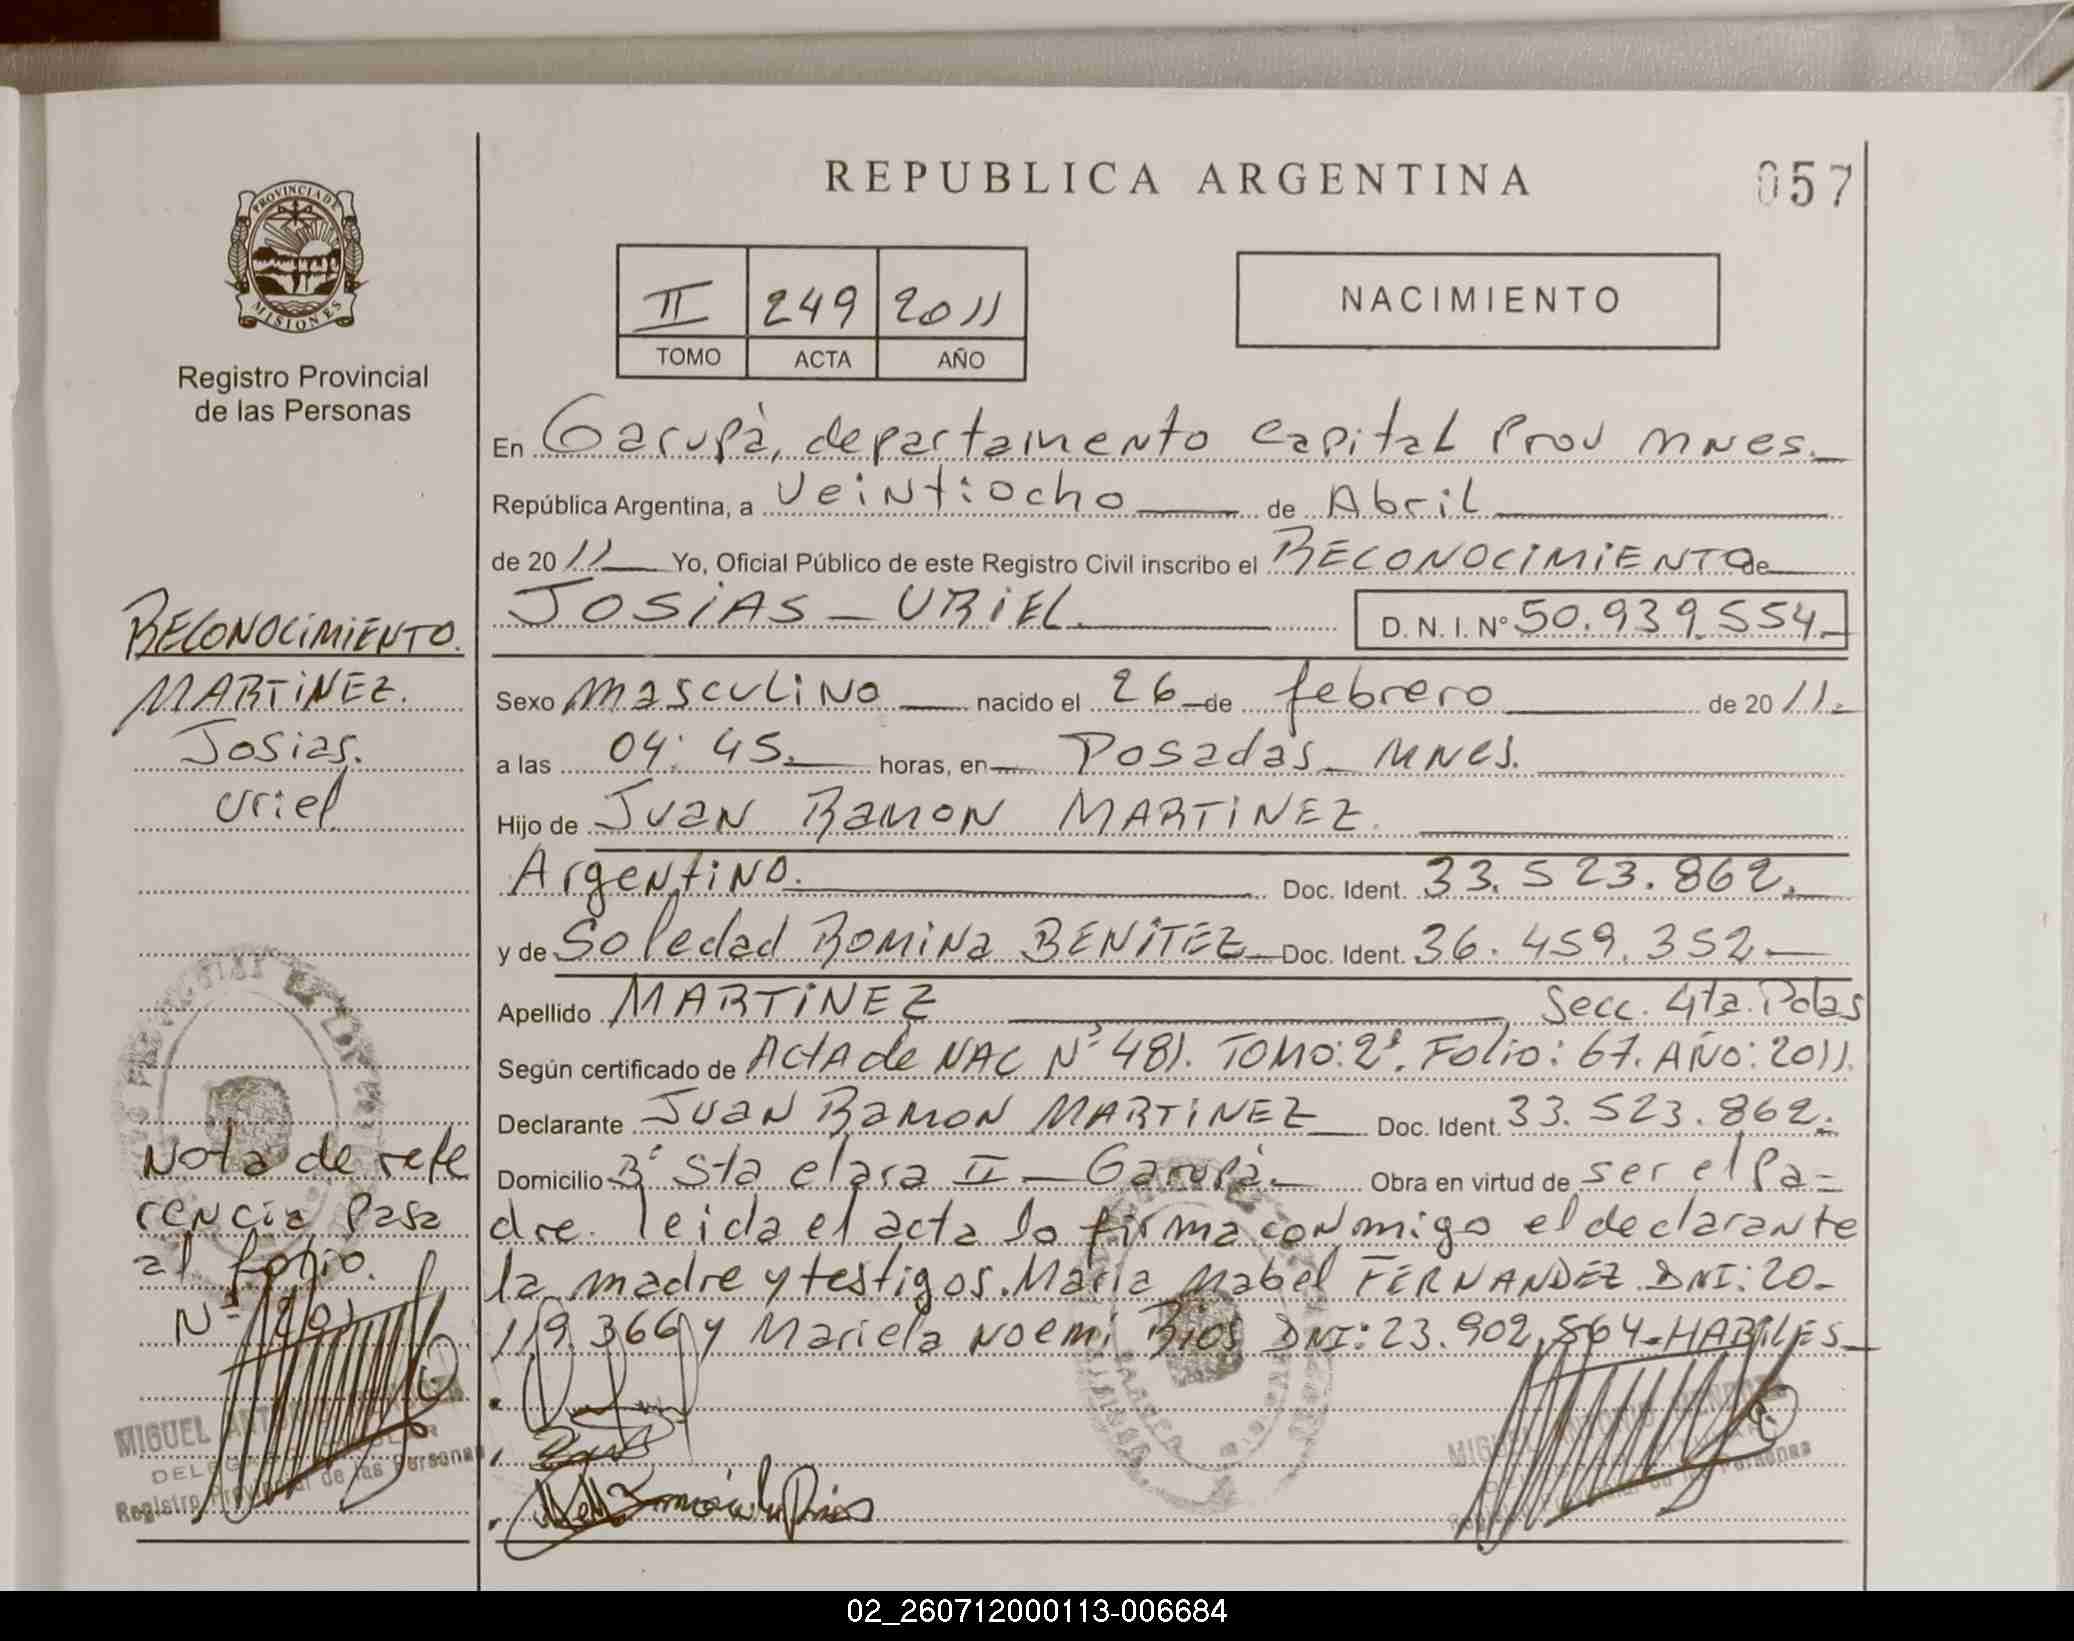 REPUBLICA ARGENTINA
057
PROVINCIA DE
MISIONES
Registro Provincial
de las Personas
II 249 2011
TOMO ACTA AÑO
NACIMIENTO
En Garupà, departamento Capital Prov Mnes.
República Argentina, a Veintiocho de Abril
de 2011 Yo, Oficial Público de este Registro Civil inscribo el RECONOCIMIENTO de
JOSIAS - URIEL. D. N. I. N° 50.939.554.
RECONOCIMIENTO.
MARTINEZ.
Josias.
Uriel
Sexo Masculino nacido el 26 de febrero de 2011.
a las 04:45. horas, en Posadas - Mnes.
Hijo de Juan Ramon MARTINEZ.
Argentino. Doc. Ident. 33.523.862.
y de Soledad Romina BENITEZ Doc. Ident. 36.459.352
Apellido MARTINEZ Secc. 4ta. Pdas
Según certificado de Acta de NAC N° 481. TOMO: 2°. Folio: 67. AÑO: 2011.
Declarante Juan Ramon MARTINEZ Doc. Ident. 33.523.862.
Domicilio B° Sta Clara II - Garupà. Obra en virtud de ser el Pa=
dre. leida el acta lo firma conmigo el declarante
la madre y testigos. Maria Mabel FERNANDEZ DNI: 20-
119.366 y Mariela Noemi Rios DNI: 23.902.564-HABILES
Nota de refe
rencia Pasa
al folio.
N° 201
MIGUEL ANTONIO
DELEGADO TITULAR
Registro Provincial de las Personas
MIGUEL ANTONIO
02_260712000113-006684